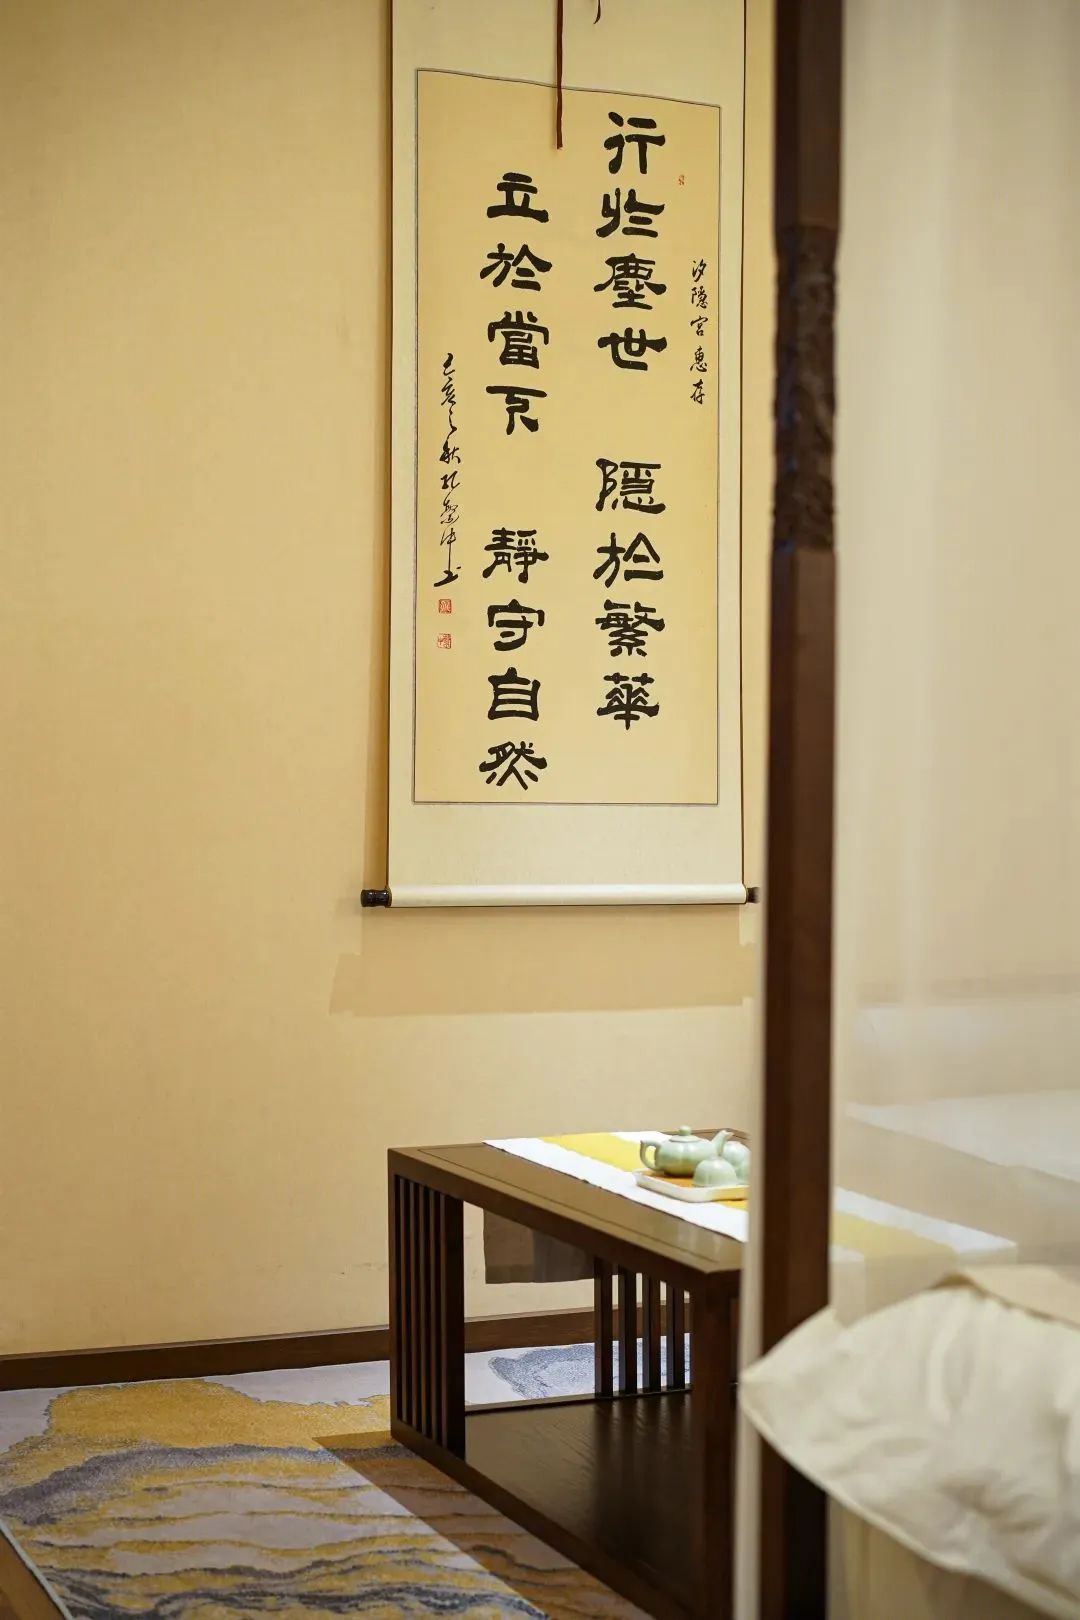 汐隱宮惠存
行於塵世 隱於繁華
立於當下 靜守自然
己亥之秋